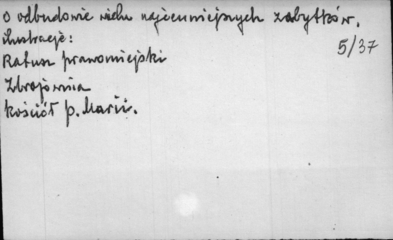 O odbudowie wielu najcenniejszych zabytków.
ilustracje:
5/37
Ratusz prawomiejski
Zbrojownia
Kościół p. Marii.